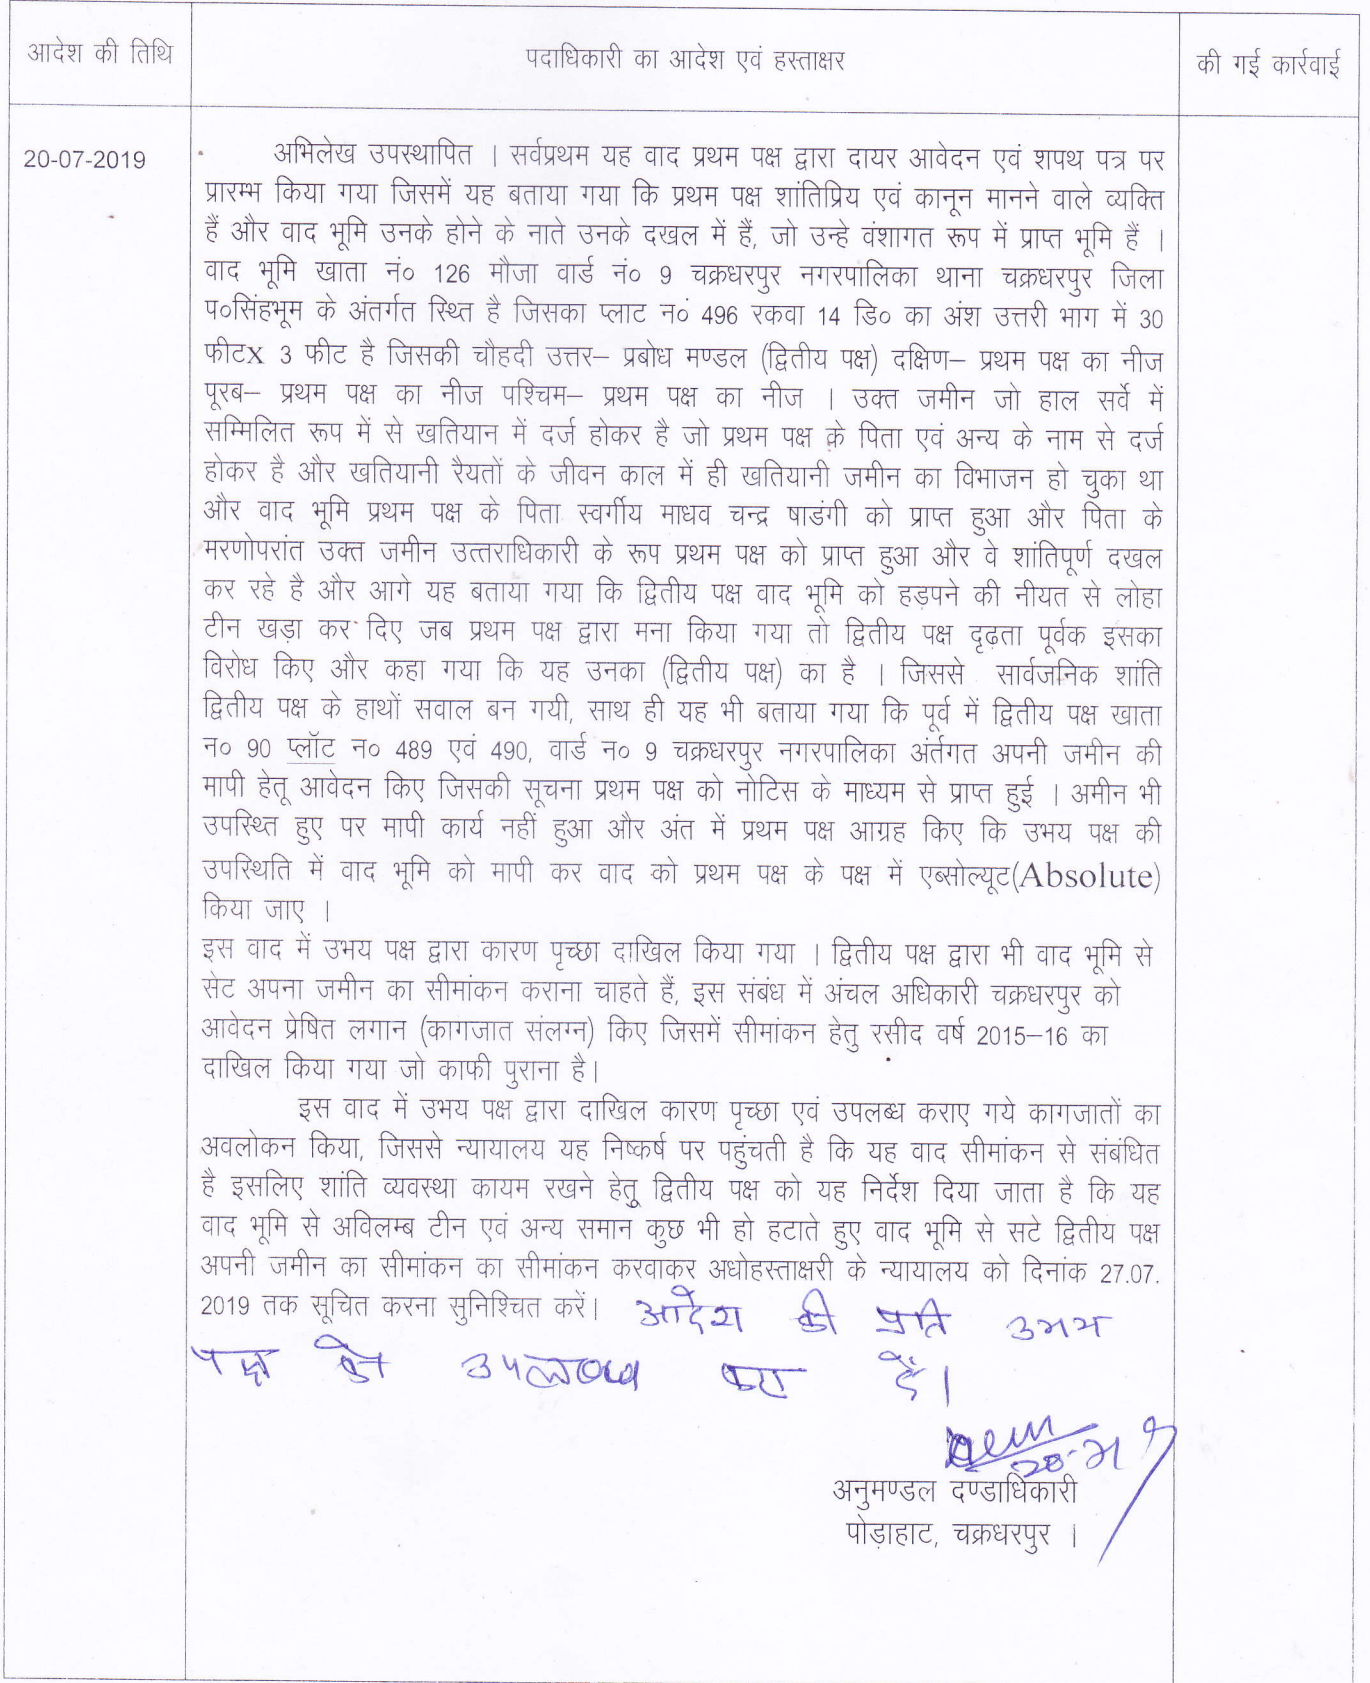 आदेश की तिथि
पदाधिकारी का आदेश एवं हस्ताक्षर
की गई कार्रवाई
20-07-2019
अभिलेख उपस्थापित । सर्वप्रथम यह वाद प्रथम पक्ष द्वारा दायर आवेदन एवं शपथ पत्र पर
प्रारम्भ किया गया जिसमें यह बताया गया कि प्रथम पक्ष शांतिप्रिय एवं कानून मानने वाले व्यक्ति
हैं और वाद भूमि उनके होने के नाते उनके दखल में हैं, जो उन्हे वंशागत रूप में प्राप्त भूमि हैं ।
वाद भूमि खाता नं० 126 मौजा वार्ड नं० 9 चक्रधरपुर नगरपालिका थाना चक्रधरपुर जिला
प०सिंहभूम के अंतर्गत स्थित है जिसका प्लाट नं० 496 रकवा 14 डि० का अंश उत्तरी भाग में 30
फीटX 3 फीट है जिसकी चौहदी उत्तर– प्रबोध मण्डल (द्वितीय पक्ष) दक्षिण– प्रथम पक्ष का नीज
पूरब– प्रथम पक्ष का नीज पश्चिम– प्रथम पक्ष का नीज । उक्त जमीन जो हाल सर्वे में
सम्मिलित रूप में से खतियान में दर्ज होकर है जो प्रथम पक्ष के पिता एवं अन्य के नाम से दर्ज
होकर है और खतियानी रैयतों के जीवन काल में ही खतियानी जमीन का विभाजन हो चुका था
और वाद भूमि प्रथम पक्ष के पिता स्वर्गीय माधव चन्द्र षाडंगी को प्राप्त हुआ और पिता के
मरणोपरांत उक्त जमीन उत्तराधिकारी के रूप प्रथम पक्ष को प्राप्त हुआ और वे शांतिपूर्ण दखल
कर रहे है और आगे यह बताया गया कि द्वितीय पक्ष वाद भूमि को हड़पने की नीयत से लोहा
टीन खड़ा कर दिए जब प्रथम पक्ष द्वारा मना किया गया तो द्वितीय पक्ष दृढ़ता पूर्वक इसका
विरोध किए और कहा गया कि यह उनका (द्वितीय पक्ष) का है । जिससे सार्वजनिक शांति
द्वितीय पक्ष के हाथों सवाल बन गयी, साथ ही यह भी बताया गया कि पूर्व में द्वितीय पक्ष खाता
न० 90 प्लॉट न० 489 एवं 490, वार्ड न० 9 चक्रधरपुर नगरपालिका अंर्तगत अपनी जमीन की
मापी हेतू आवेदन किए जिसकी सूचना प्रथम पक्ष को नोटिस के माध्यम से प्राप्त हुई । अमीन भी
उपस्थित हुए पर मापी कार्य नहीं हुआ और अंत में प्रथम पक्ष आग्रह किए कि उभय पक्ष की
उपस्थिति में वाद भूमि को मापी कर वाद को प्रथम पक्ष के पक्ष में एब्सोल्यूट(Absolute)
किया जाए ।
इस वाद में उभय पक्ष द्वारा कारण पृच्छा दाखिल किया गया । द्वितीय पक्ष द्वारा भी वाद भूमि से
सेट अपना जमीन का सीमांकन कराना चाहते हैं, इस संबंध में अंचल अधिकारी चक्रधरपुर को
आवेदन प्रेषित लगान (कागजात संलग्न) किए जिसमें सीमांकन हेतु रसीद वर्ष 2015–16 का
दाखिल किया गया जो काफी पुराना है।
इस वाद में उभय पक्ष द्वारा दाखिल कारण पृच्छा एवं उपलब्ध कराए गये कागजातों का
अवलोकन किया, जिससे न्यायालय यह निष्कर्ष पर पहुंचती है कि यह वाद सीमांकन से संबंधित
है इसलिए शांति व्यवस्था कायम रखने हेतु द्वितीय पक्ष को यह निर्देश दिया जाता है कि यह
वाद भूमि से अविलम्ब टीन एवं अन्य समान कुछ भी हो हटाते हुए वाद भूमि से सटे द्वितीय पक्ष
अपनी जमीन का सीमांकन का सीमांकन करवाकर अधोहस्ताक्षरी के न्यायालय को दिनांक 27.07.
2019 तक सूचित करना सुनिश्चित करें। आदेश की प्रति उभय
पक्ष को उपलब्ध करा दें।
अनुमण्डल दण्डाधिकारी
पोड़ाहाट, चक्रधरपुर ।